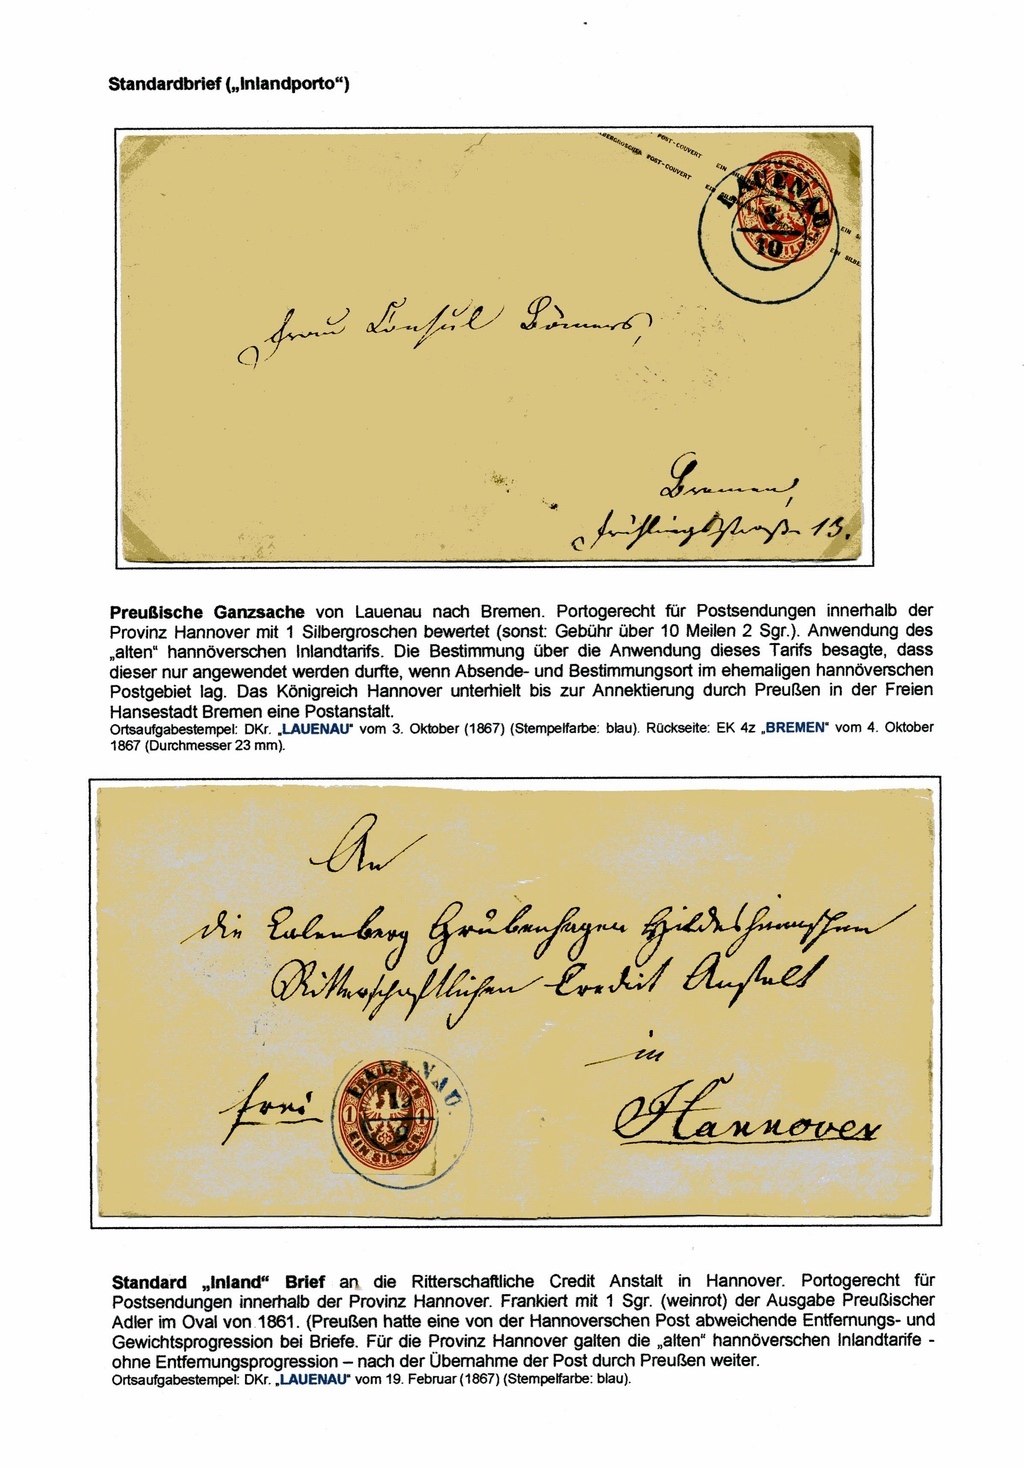 Standardbrief („Inlandporto“)
SILBERGROSCHEN POST-COUVERT
POST-COUVERT EIN
LAUENAU
3
10
Frau Consul Bömers,
Bremen,
Frühlingsstraße 13.
Preußische Ganzsache von Lauenau nach Bremen. Portogerecht für Postsendungen innerhalb der
Provinz Hannover mit 1 Silbergroschen bewertet (sonst: Gebühr über 10 Meilen 2 Sgr.). Anwendung des
„alten“ hannöverschen Inlandtarifs. Die Bestimmung über die Anwendung dieses Tarifs besagte, dass
dieser nur angewendet werden durfte, wenn Absende- und Bestimmungsort im ehemaligen hannöverschen
Postgebiet lag. Das Königreich Hannover unterhielt bis zur Annektierung durch Preußen in der Freien
Hansestadt Bremen eine Postanstalt.
Ortsaufgabestempel: DKr. „LAUENAU“ vom 3. Oktober (1867) (Stempelfarbe: blau). Rückseite: EK 4z „BREMEN“ vom 4. Oktober
1867 (Durchmesser 23 mm).
An
die Calenberg Grubenhagen Hildesheimschen
Ritterschaftlichen Credit Anstalt
in
Hannover
frei
LAUENAU.
PREUSSEN
1 1
EIN SILBGR.
Standard „Inland“ Brief an die Ritterschaftliche Credit Anstalt in Hannover. Portogerecht für
Postsendungen innerhalb der Provinz Hannover. Frankiert mit 1 Sgr. (weinrot) der Ausgabe Preußischer
Adler im Oval von 1861. (Preußen hatte eine von der Hannoverschen Post abweichende Entfernungs- und
Gewichtsprogression bei Briefe. Für die Provinz Hannover galten die „alten“ hannöverschen Inlandtarife -
ohne Entfernungsprogression – nach der Übernahme der Post durch Preußen weiter.
Ortsaufgabestempel: DKr. „LAUENAU“ vom 19. Februar (1867) (Stempelfarbe: blau).